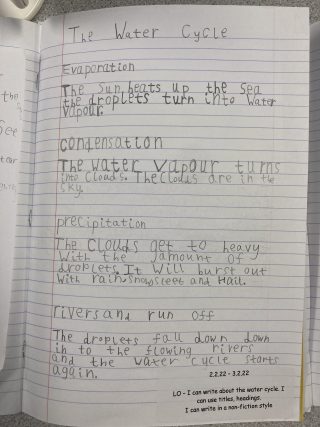 The Water Cycle
Evaporation
The Sun heats up the Sea
the droplets turn into water
Vapour.
condensation
The water vapour turns
into clouds. The clouds are in the
sky
precipitation
The clouds get to heavy
with the amount of
droplets. It will burst out
with rain snow sleet and Hail.
rivers and run off
The droplets fall down down
in to the flowing rivers
and the water cycle starts
again.
2.2.22 - 3.2.22
LO - I can write about the water cycle. I
can use titles, headings.
I can write in a non-fiction style